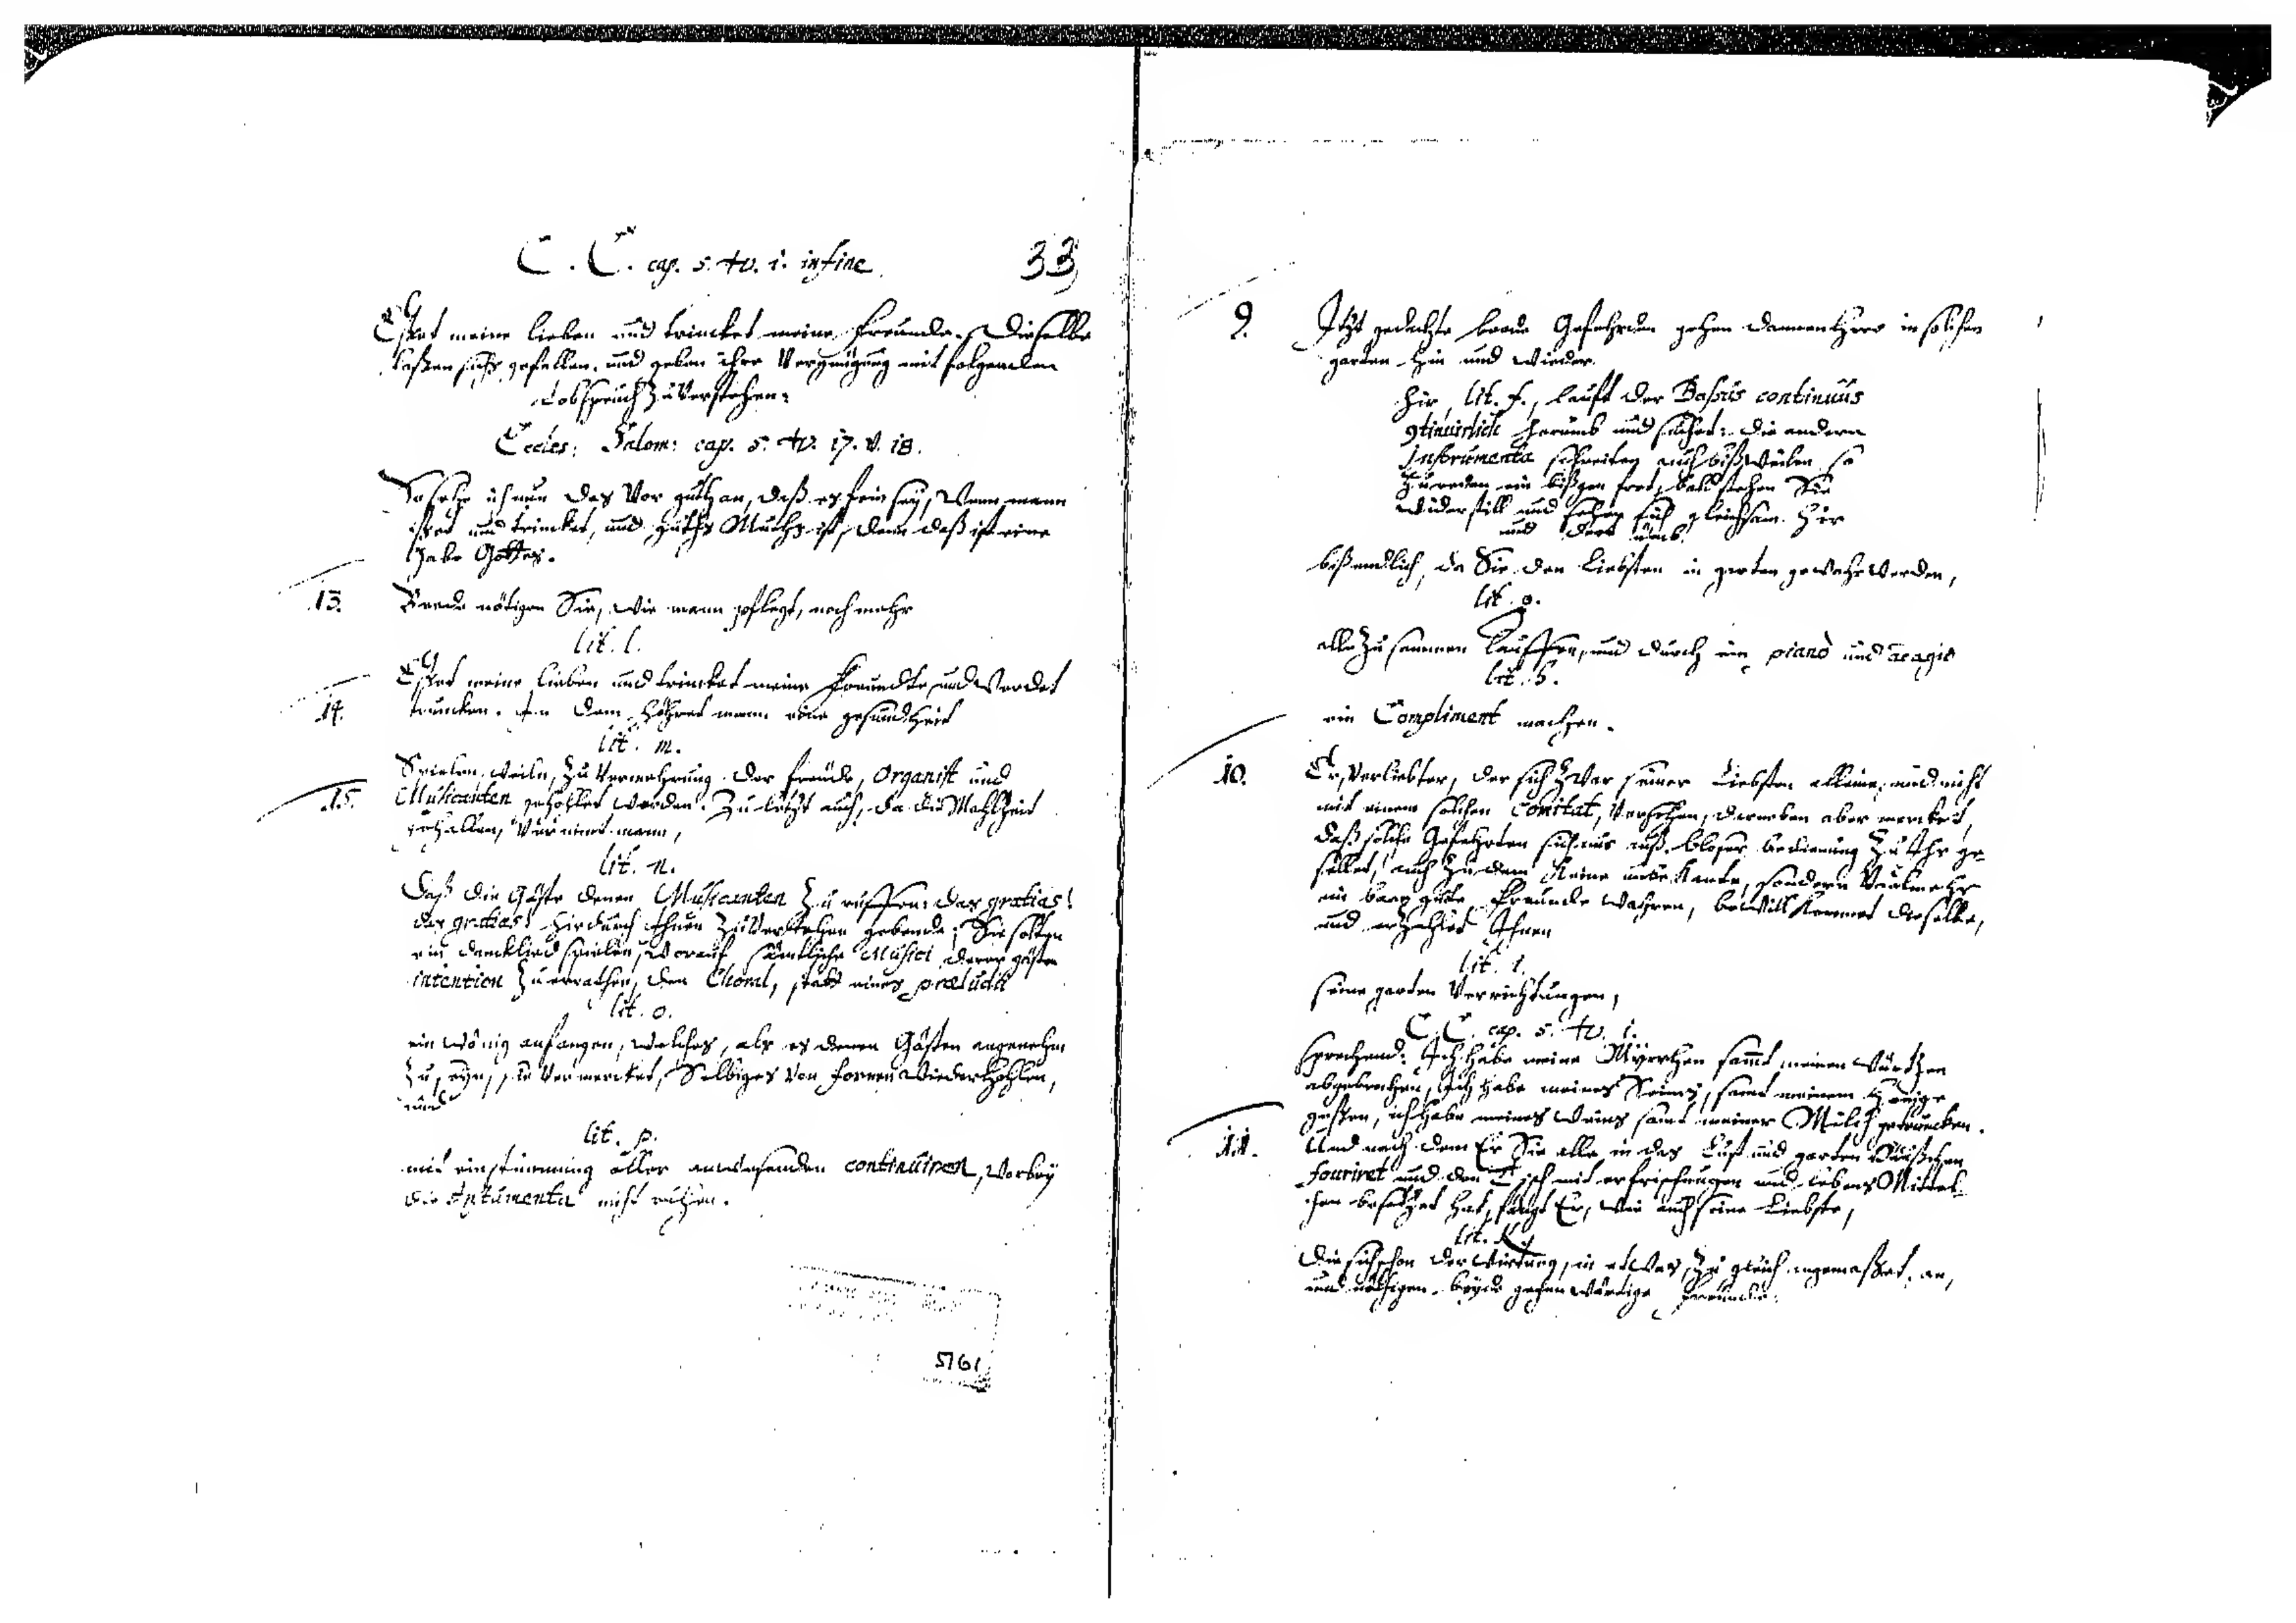 C. C. cap. 5. v. 1. in fine
33
Eßet meine lieben und trincket meine Freunde. Dieselbe
laßen sichs gefallen, und geben ihre Vergnügung mit folgenden
Lobspruch zu verstehen:
Eccles: Salom: cap. 5. v. 17. v. 18.
So sehe ich nun das vor guth an, daß es fein sey, wenn mann
ißet und trincket, und guths Muths ist, denn daß ist eine
gabe Gottes.
13. Beede nötigen Sie, wie mann pflegt, noch mehr
lit. l.
Eßet meine lieben und trincket meine Freundte, und werdet
14. truncken. In dem höhret mann eine gesundheit
lit. m.
Spielen, weiln, zu vermehrung der freude, Organist und
15. Musicanten gehohlet werden. Zu letzt auch, da die Mahlzeit
gehalten, vernimt mann,
lit. n.
Daß die Gäste denen Musicanten zu ruffen: das gratias!
das gratias! hirdurch ihnen zu verstehen gebende; Sie solten
ein dancklied spielen, worauf sämtliche Musici, derer gästen
intention zu errathen, den Choral, statt eines præludii
lit. o.
ein wönig anfangen, welches, als es denen Gästen angenehm
zu seyn, sie vermercket, Selbiges von fornen wiederhohlen,
und
lit. p.
mit einstimmung aller anwesenden continuiren, worbey
die Instrumenta nicht ruhen.
5761
9. Itzt gedachte beede Gefehrden gehen dannenhero in solchen
garten hin und wieder.
hir, lit. f., lauft der Bassus continuus
9tinuirlich herumb und suchet: die andern
Instrumenta schreiten auch bißweilen so
zu reden ein bißgen fort, bald stehen Sie
wider still und sehen sich gleichsam hir
und dort umb.
biß endlich, da Sie den Liebsten in garten gewahr werden,
lit. g.
alle zusammen lauffen, und durch ein piano und adagio
lit. h.
ein Compliment machen.
10. Er, Verliebter, der sich zwar seiner Liebsten alleine, und nicht
mit einem solchen Comitat, versehen, darneben aber mercket,
daß solche Gefehrten sich nur auß bloser bedienung zu Ihr ge-
sellet, auch zu dem keine unbekante, sondern vielmehr
ein baar gute Freunde wahren, bewillkommet dieselbe,
und erzehlet Ihnen
lit. i.
seine garten Verrichtungen,
C. C. cap. 5. v. 1.
sprechend: Ich habe meine Myrrhen samt meinen würtzen
abgebrochen, Ich habe meines Seims, samt meinem honige
geßen, ich habe meines weins samt meiner Milch getruncken.
11. Und nach dem Er Sie alle in das Lust und garten Häußgen
fouriret und den Tisch mit erfrischungen und lebens Mittel-
chen besetzet hat, fangt Er, wie auch seine Liebste,
lit. K.
die sich schon der wirtung, in etwas, zu gleich angemaßet, an,
und nöthigen beyde gegenwärtige Freunde: